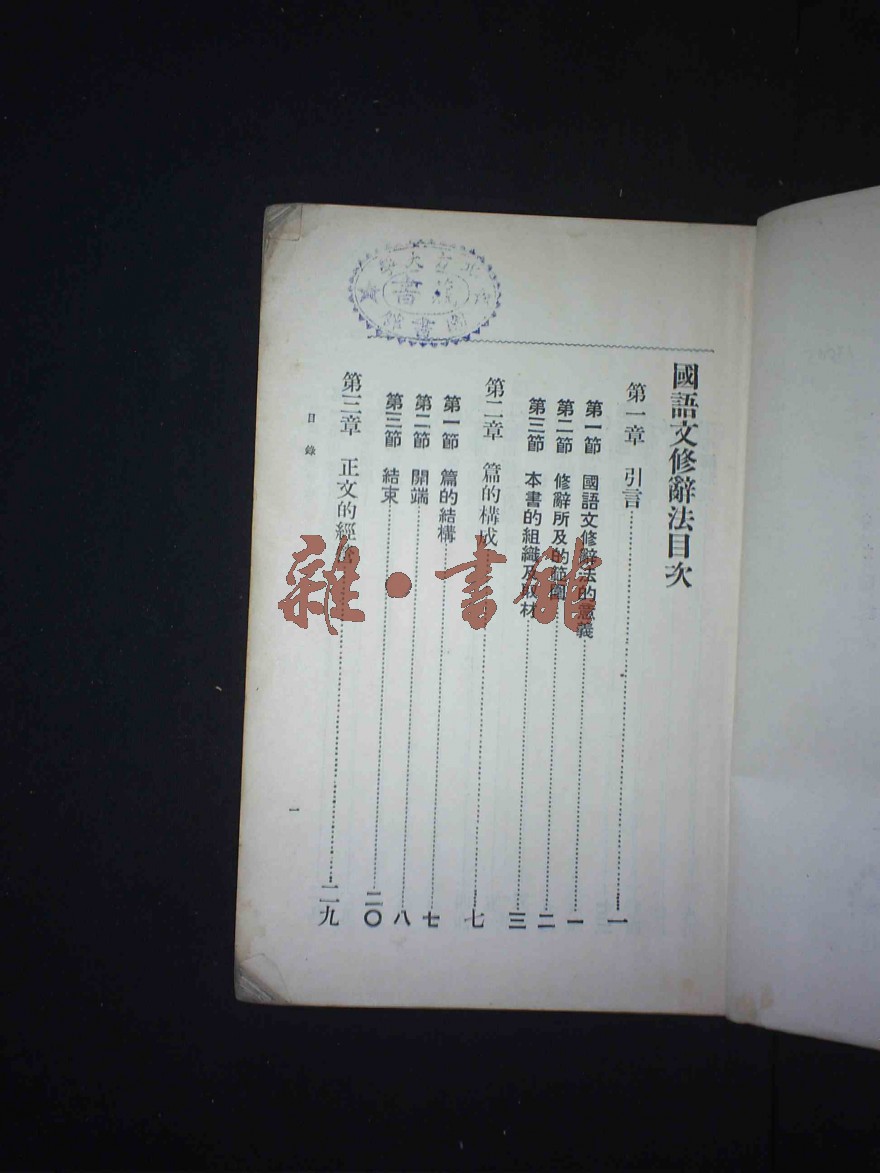 國語文修辭法目次
第一章 引言⋯⋯⋯⋯一
第一節 國語文修辭法的意義⋯⋯⋯⋯一
第二節 修辭所及的範圍⋯⋯⋯⋯二
第三節 本書的組織及取材⋯⋯⋯⋯三
第二章 篇的構成⋯⋯⋯⋯七
第一節 篇的結構⋯⋯⋯⋯七
第二節 開端⋯⋯⋯⋯八
第三節 結束⋯⋯⋯⋯二〇
第三章 正文的經⋯⋯⋯⋯二九
目錄
一
藏書
圖書館
雜·書館